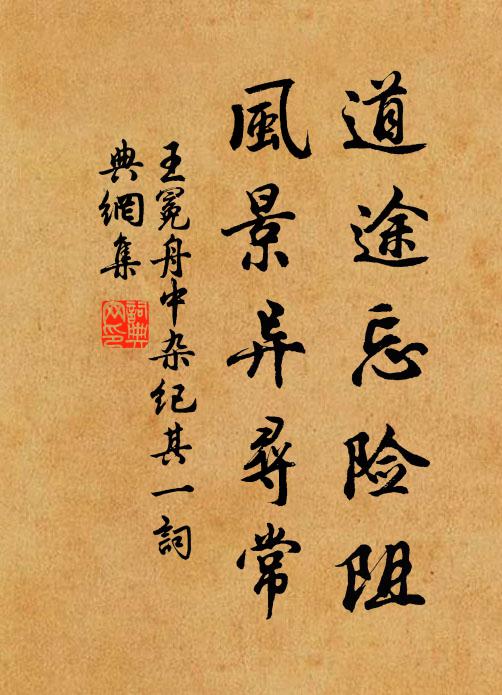 道途忘险阻
風景异尋常
王冕舟中杂纪其一詞
典網集
詞典
网印